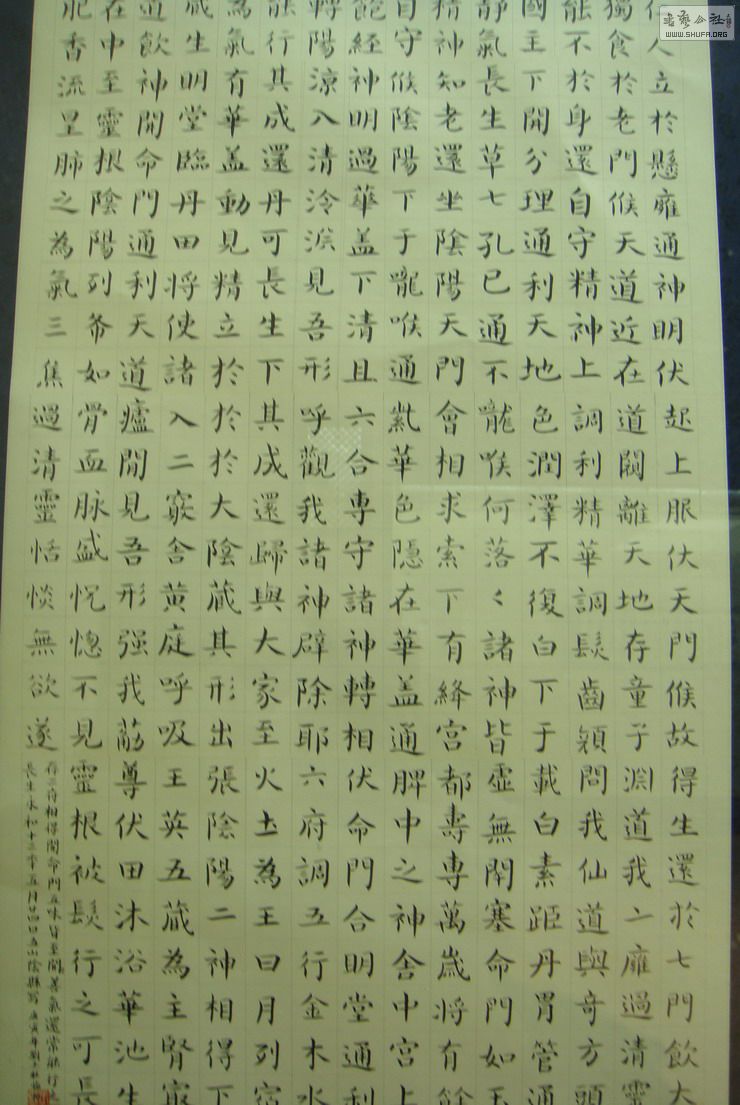 書藝公社
WWW.SHUFA.ORG
人立於懸雍通神明伏起上服伏天門候故得生還於七門飲大
獨食於老門候天道近在道闕離天地存童子淵道我二雍過清靈
能不於身還自守精神上調利精華調髮齒穎問我仙道與奇方頭
國主下開分理通利天地色潤澤不復白下于載白素距丹胃管通
靜氣長生草七孔已通不嚨喉何落〻諸神皆虛無閉塞命門如玉
精神知老還坐陰陽天門會相求索下有絳宮都壽專萬歲將有餘
自守候陰陽下于嚨喉通亂華色隱在華蓋通脾中之神舍中宮上
飽經神明過華蓋下清且六合專守諸神轉相伏命門合明堂通利
轉陽涼入清泠淚見吾形呼觀我諸神辟除耶六府調五行金木水
能行其成還丹可長生下其成還歸與大家至火土為王日月列宿
為氣有華蓋動見精立於於於大陰藏其形出張陰陽二神相得下
藏生明堂臨丹田將使諸入二竅舍黃庭呼吸王英五藏為主腎最
道飲神開命門通利天道開見吾形强我尊伏田沐浴華池生
在中至靈根陰陽列布如骨血脉盛怳惚不見靈根被髮行之可長
肥香流呈肺之為氣三焦過清靈恬惔無欲遂
相得開命門五味皆至開善氣還常能行之
長生永和十二年五月廿四日五山陰縣寫 庚寅年